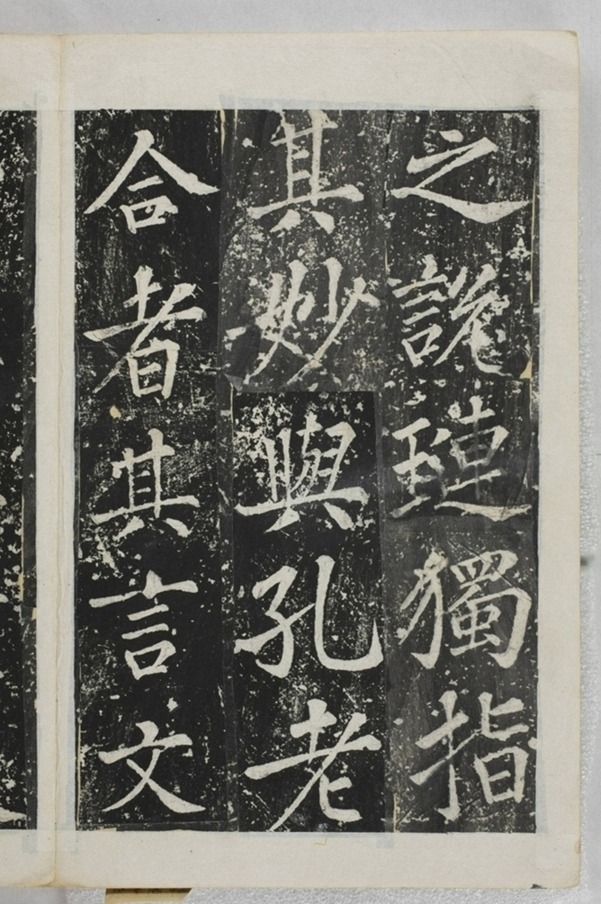 之說璉獨指
其妙與孔老
合者其言文